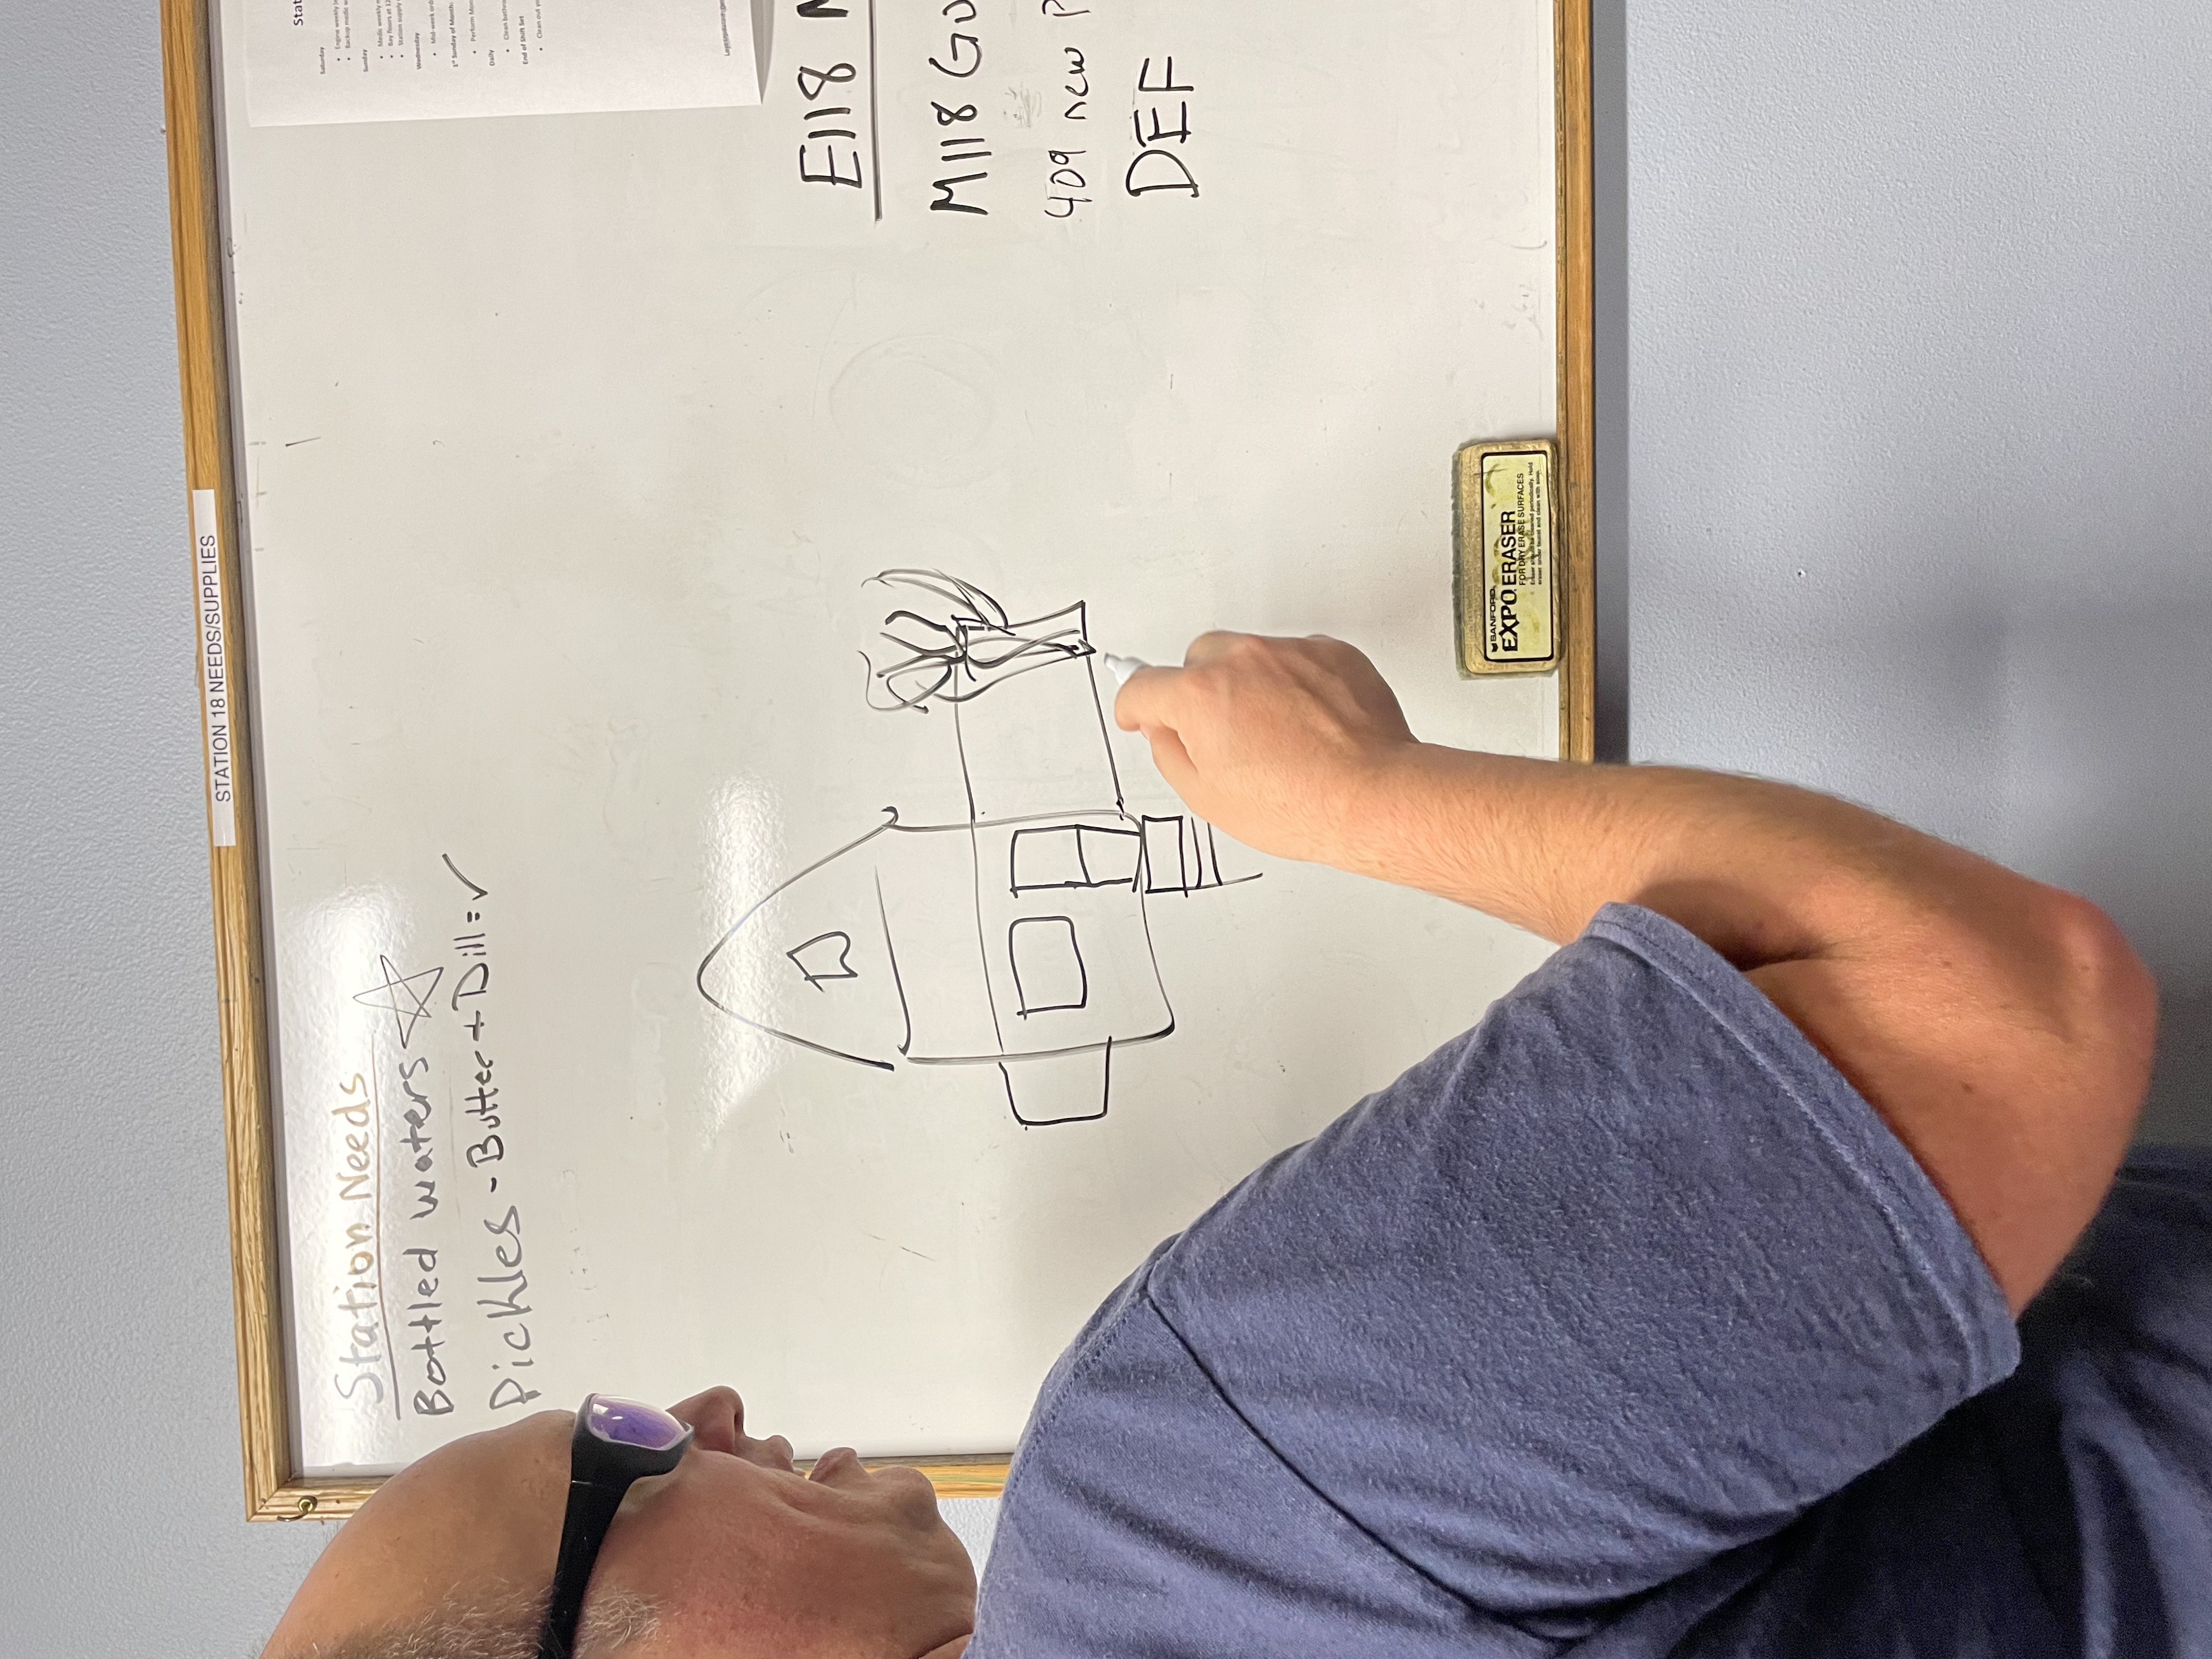 STATION 18 NEEDS/SUPPLIES
Station Needs
Bottled waters
Pickles - Butter + Dill = ✓
Stat
Saturday
• Engine weekly
• Backup medic
Sunday
• Medic weekly
• Bay floors at 12
• Station supply
Wednesday
• Mid-week
1st Sunday of Month:
• Perform
Daily
• Clean
End of Shift Set
• Clean out
E118
M118
409 new P
DEF
SANFORD
EXPO ERASER
FOR DRY ERASE SURFACES
Eraser should be cleaned periodically. Hold
eraser under faucet and clean with soap.